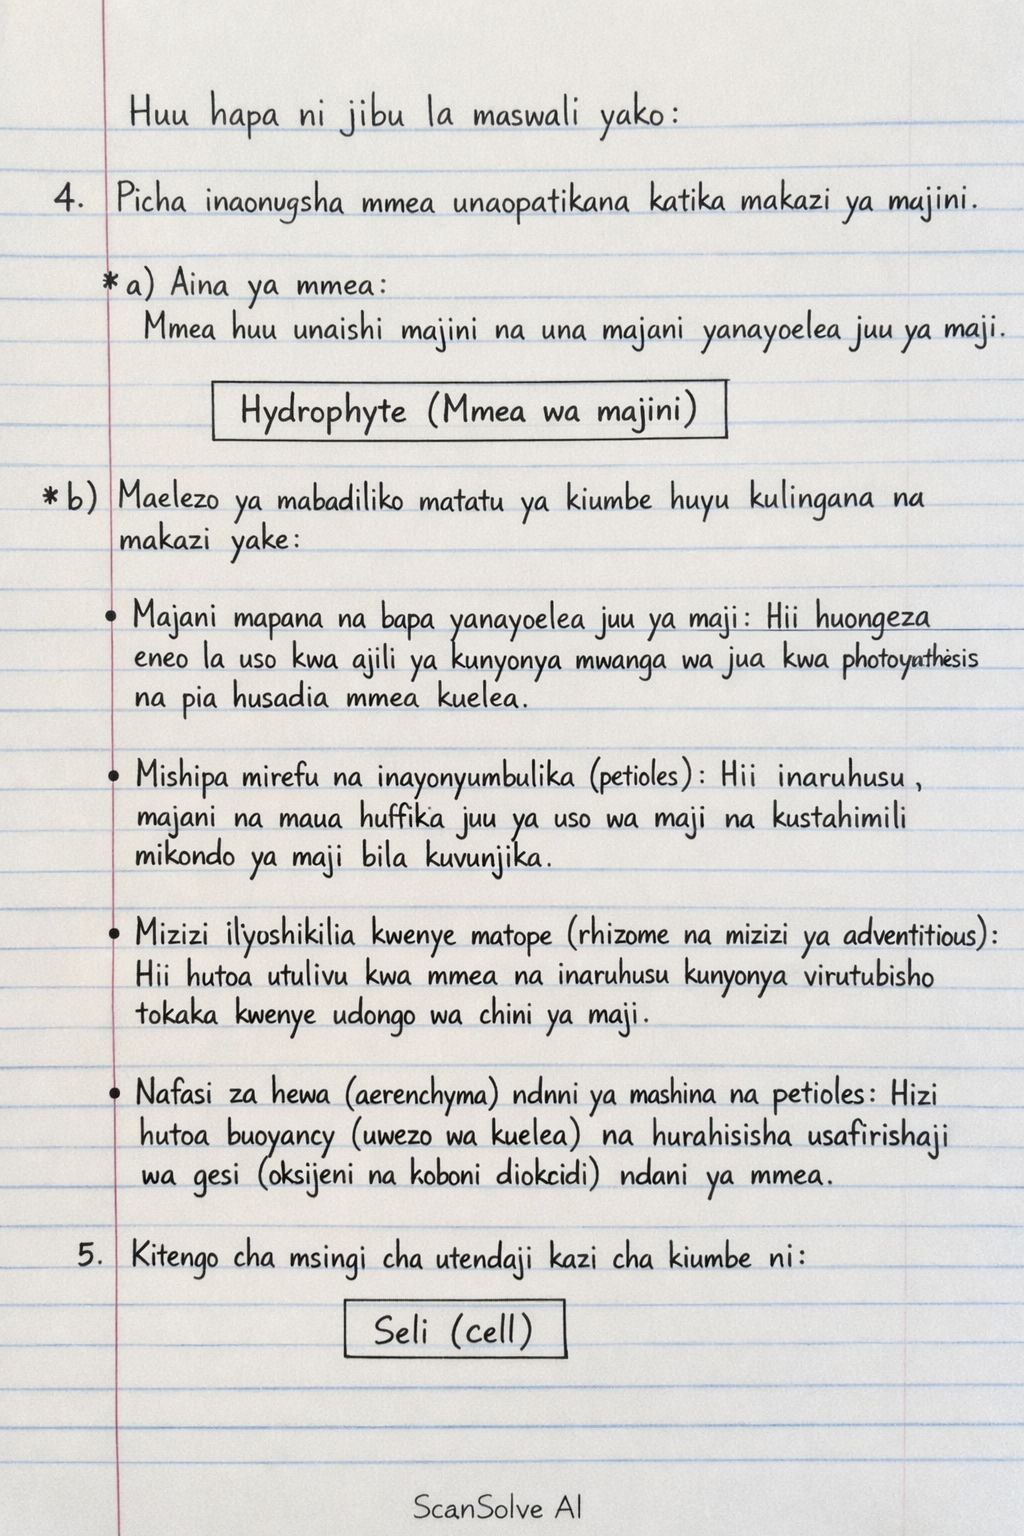 Huu hapa ni jibu la maswali yako:
4. Picha inaonugsha mmea unaopatikana katika makazi ya majini.
* a) Aina ya mmea:
Mmea huu unaishi majini na una majani yanayoelea juu ya maji.
Hydrophyte (Mmea wa majini)
* b) Maelezo ya mabadiliko matatu ya kiumbe huyu kulingana na
makazi yake:
• Majani mapana na bapa yanayoelea juu ya maji: Hii huongeza
eneo la uso kwa ajili ya kunyonya mwanga wa jua kwa
na pia husadia mmea kuelea.
• Mishipa mirefu na inayonyumbulika (petioles): Hii inaruhusu,
majani na maua huffika juu ya uso wa maji na kustahimili
mikondo ya maji bila kuvunjika.
• Mizizi kwenye matope (rhizome na mizizi ya adventitious):
Hii hutoa utulivu kwa mmea na inaruhusu kunyonya virutubisho
tokaka kwenye udongo wa chini ya maji.
• Nafasi za hewa (aerenchyma) ndnni ya mashina na petioles: Hizi
hutoa buoyancy (uwezo wa kuelea) na hurahisisha usafirishaji
wa gesi (oksijeni na koboni diokcidi) ndani ya mmea.
5. Kitengo cha msingi cha utendaji kazi cha kiumbe ni:
Seli (cell)
ScanSolve AI